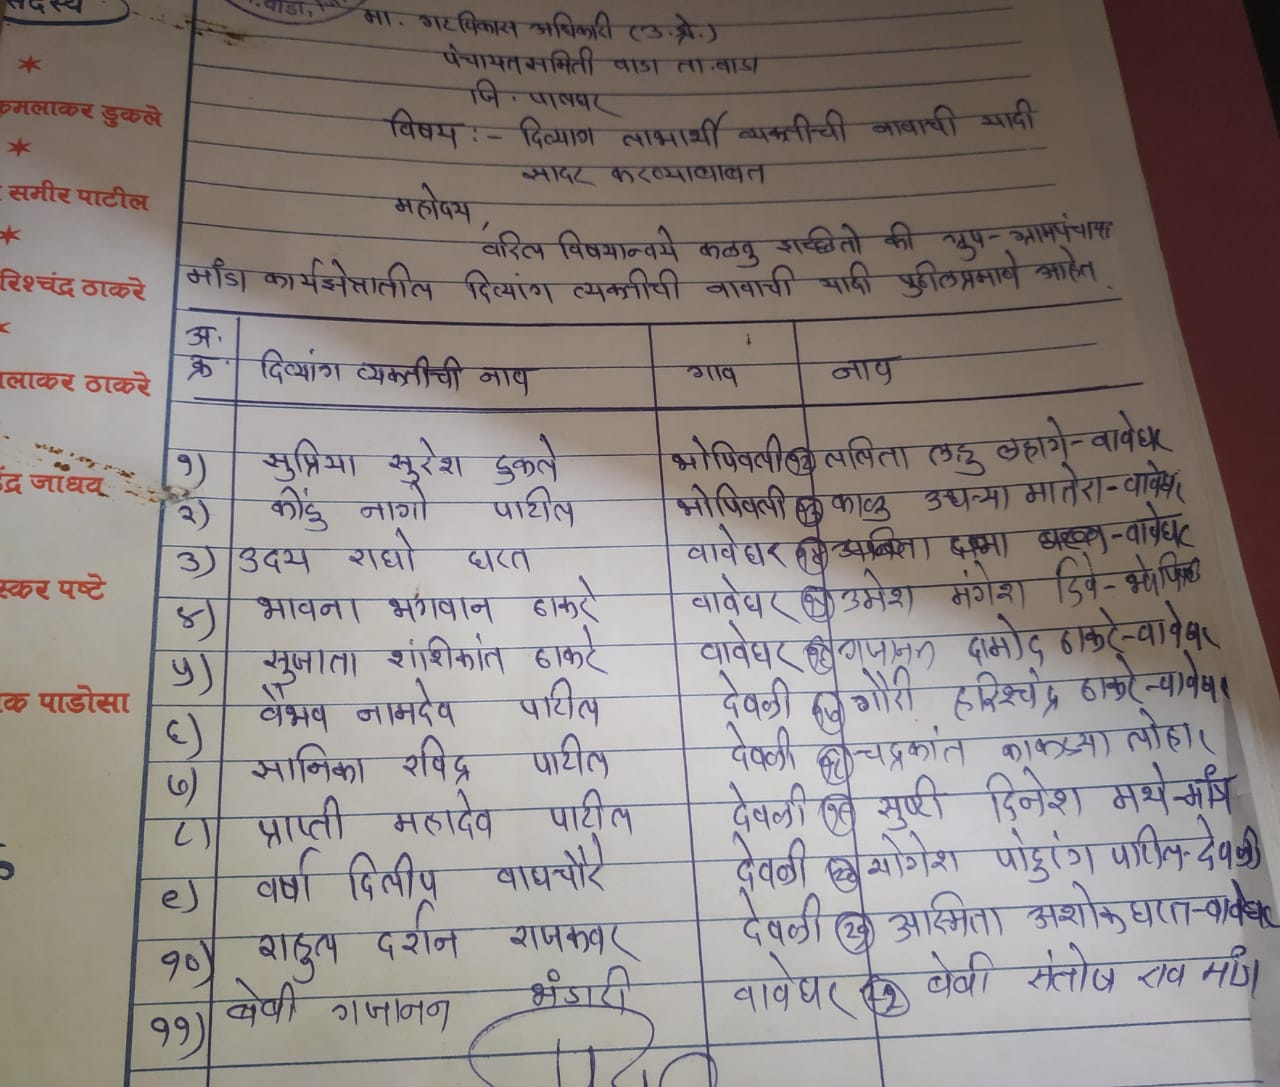 सदस्य
वाडा,
मा. गटविकास अधिकारी (उ.श्रे.)
पंचायत समिती वाडा ता.वाडा
जि. पालघर
विषय :- दिव्यांग लाभार्थी व्यक्तीची नावाची यादी
सादर करण्याबाबत
महोदय,
वरिल विषयान्वये कळवू इच्छितो की ग्रुप-ग्रामपंचायत
मांडा कार्यक्षेत्रातील दिव्यांग व्यक्तीची नावाची यादी पुढीलप्रमाणे आहेत.
अ. क्र. दिव्यांग व्यक्तीची नाव गाव नाव
१) सुप्रिया सुरेश डुकले भोपिवली १२ ललिता लहु लहांगे-वावेघर
२) कोंडु नागो पाटील भोपिवली १३ काळु उधऱ्या मातेरा-वावेघर
३) उदय राघो घरत वावेघर १४ दामा -वावेघर
४) भावना भगवान ठाकरे वावेघर १५ उमेश मंगेश दिवे-
५) सुजाता शांशिकांत ठाकरे वावेघर १६ गजानन दामोद ठाकरे-वावेघर
६) वैभव नामदेव पाटील देवळी १७ गौरी हरिश्चंद्र ठाकरे-वावेघर
७) सानिका रविंद्र पाटील देवळी १८ चंद्रकांत काकड्या लोहार
८) प्राप्ती महादेव पाटील देवळी १९ सुष्टी दिनेश मथे-मांडा
९) वर्षा दिलीप वाघचौरे देवळी २० योगेश पांडुरंग पाटील-देवळी
१०) राहुल दर्शन राजकवर देवळी २१ अस्मिता अशोक घरत-वावेघर
११) बेबी गजानन भंडारी वावेघर २२ बेबी संतोष राव मांडा
कमलाकर डुकले
समीर पाटील
रिश्चंद्र ठाकरे
लाकर ठाकरे
द्र जाधव
स्कर पष्टे
क पाडोसा